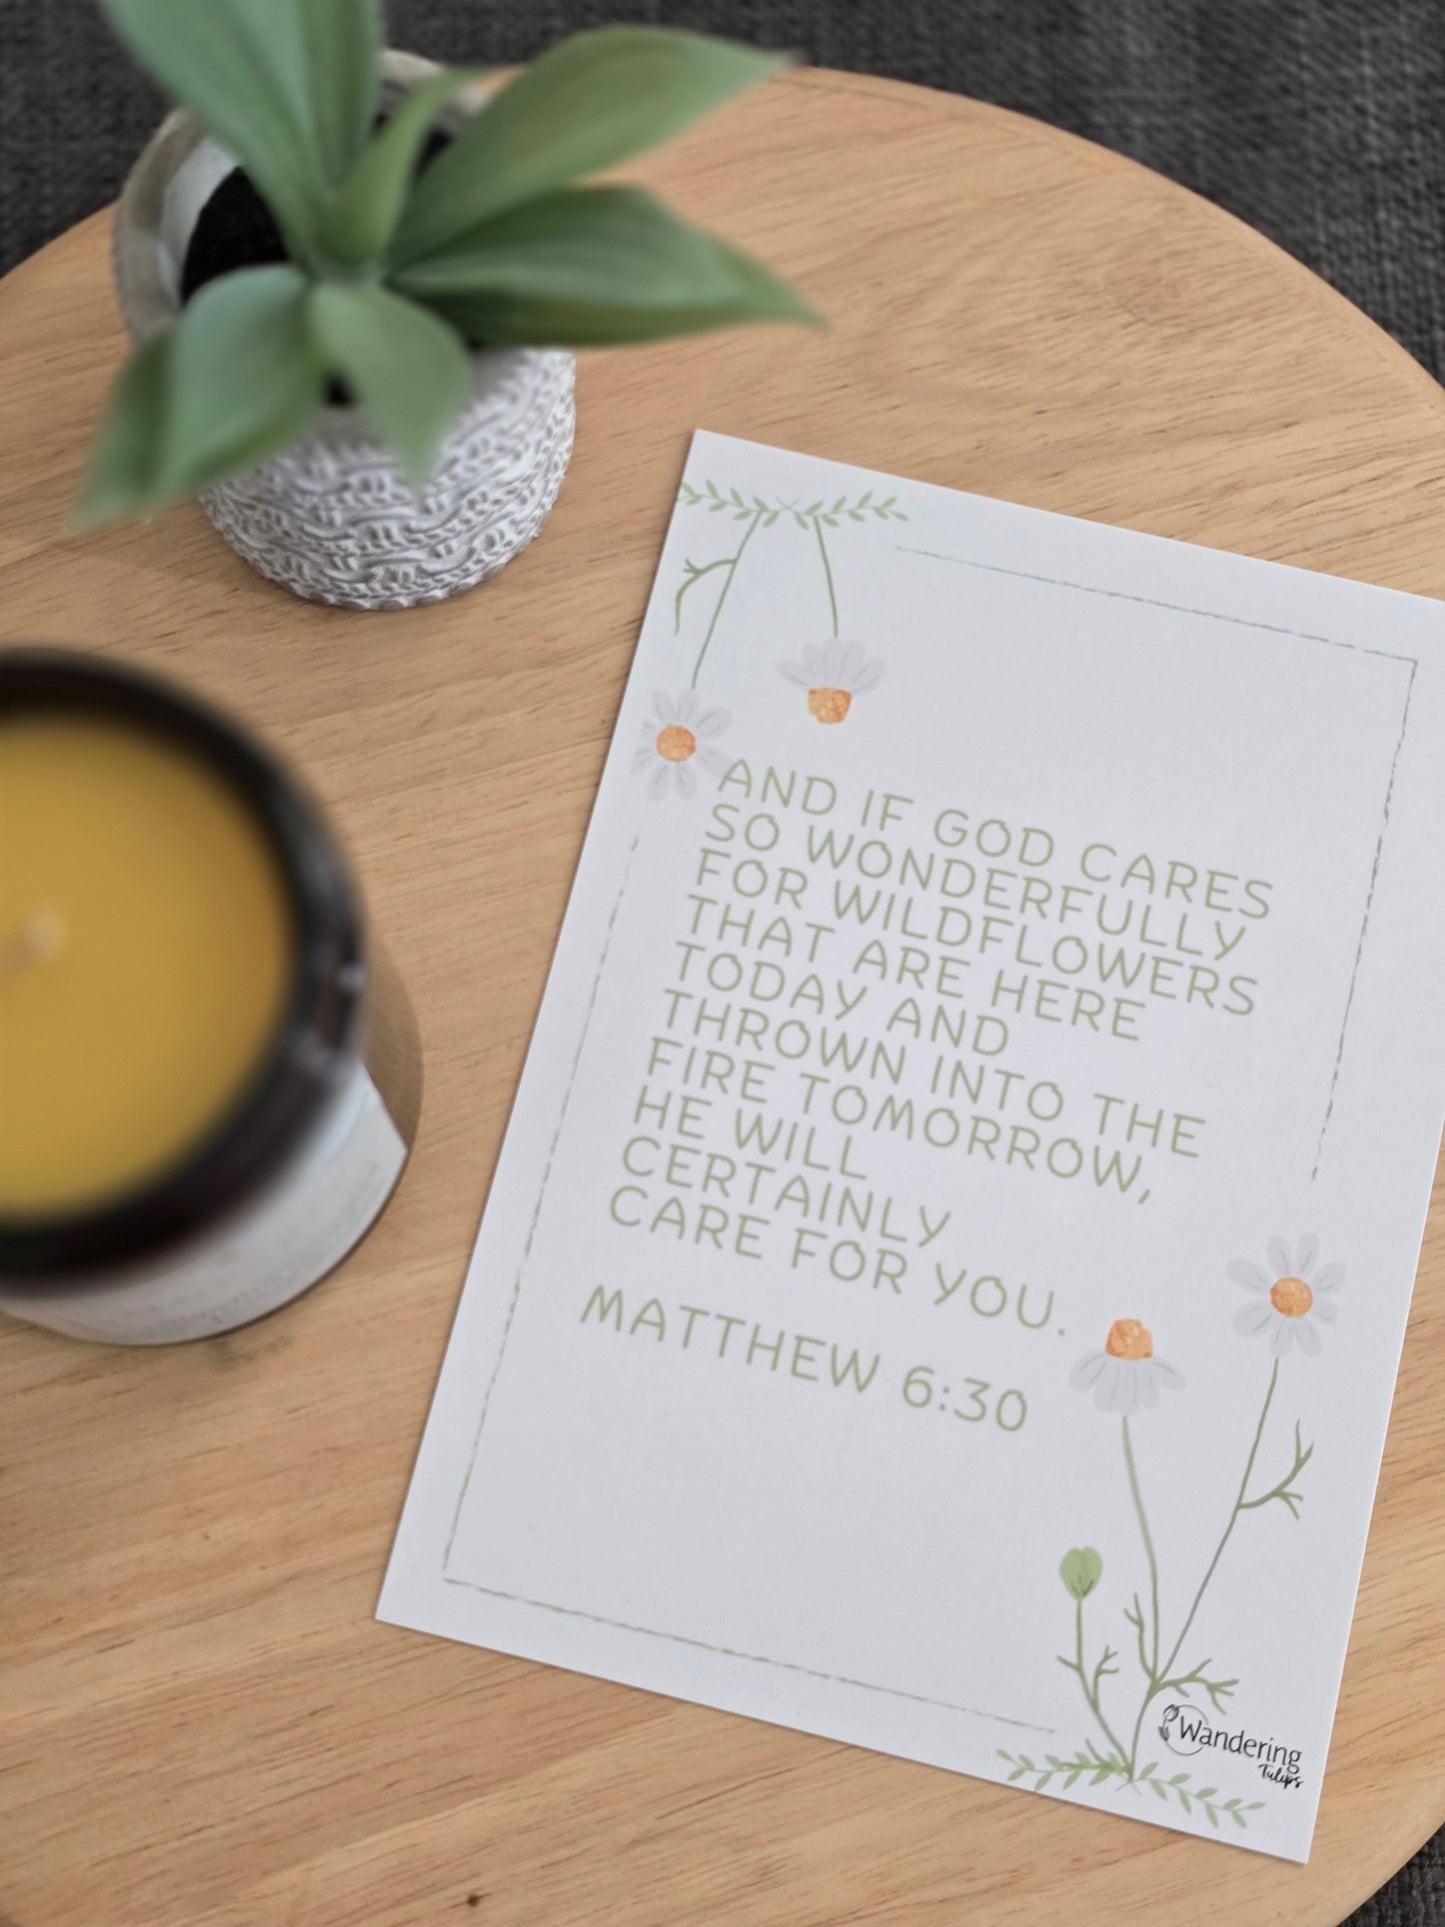 AND IF GOD CARES
SO WONDERFULLY
FOR WILDFLOWERS
THAT ARE HERE
TODAY AND
THROWN INTO THE
FIRE TOMORROW,
HE WILL
CERTAINLY
CARE FOR YOU.
MATTHEW 6:30
Wandering
Tulips